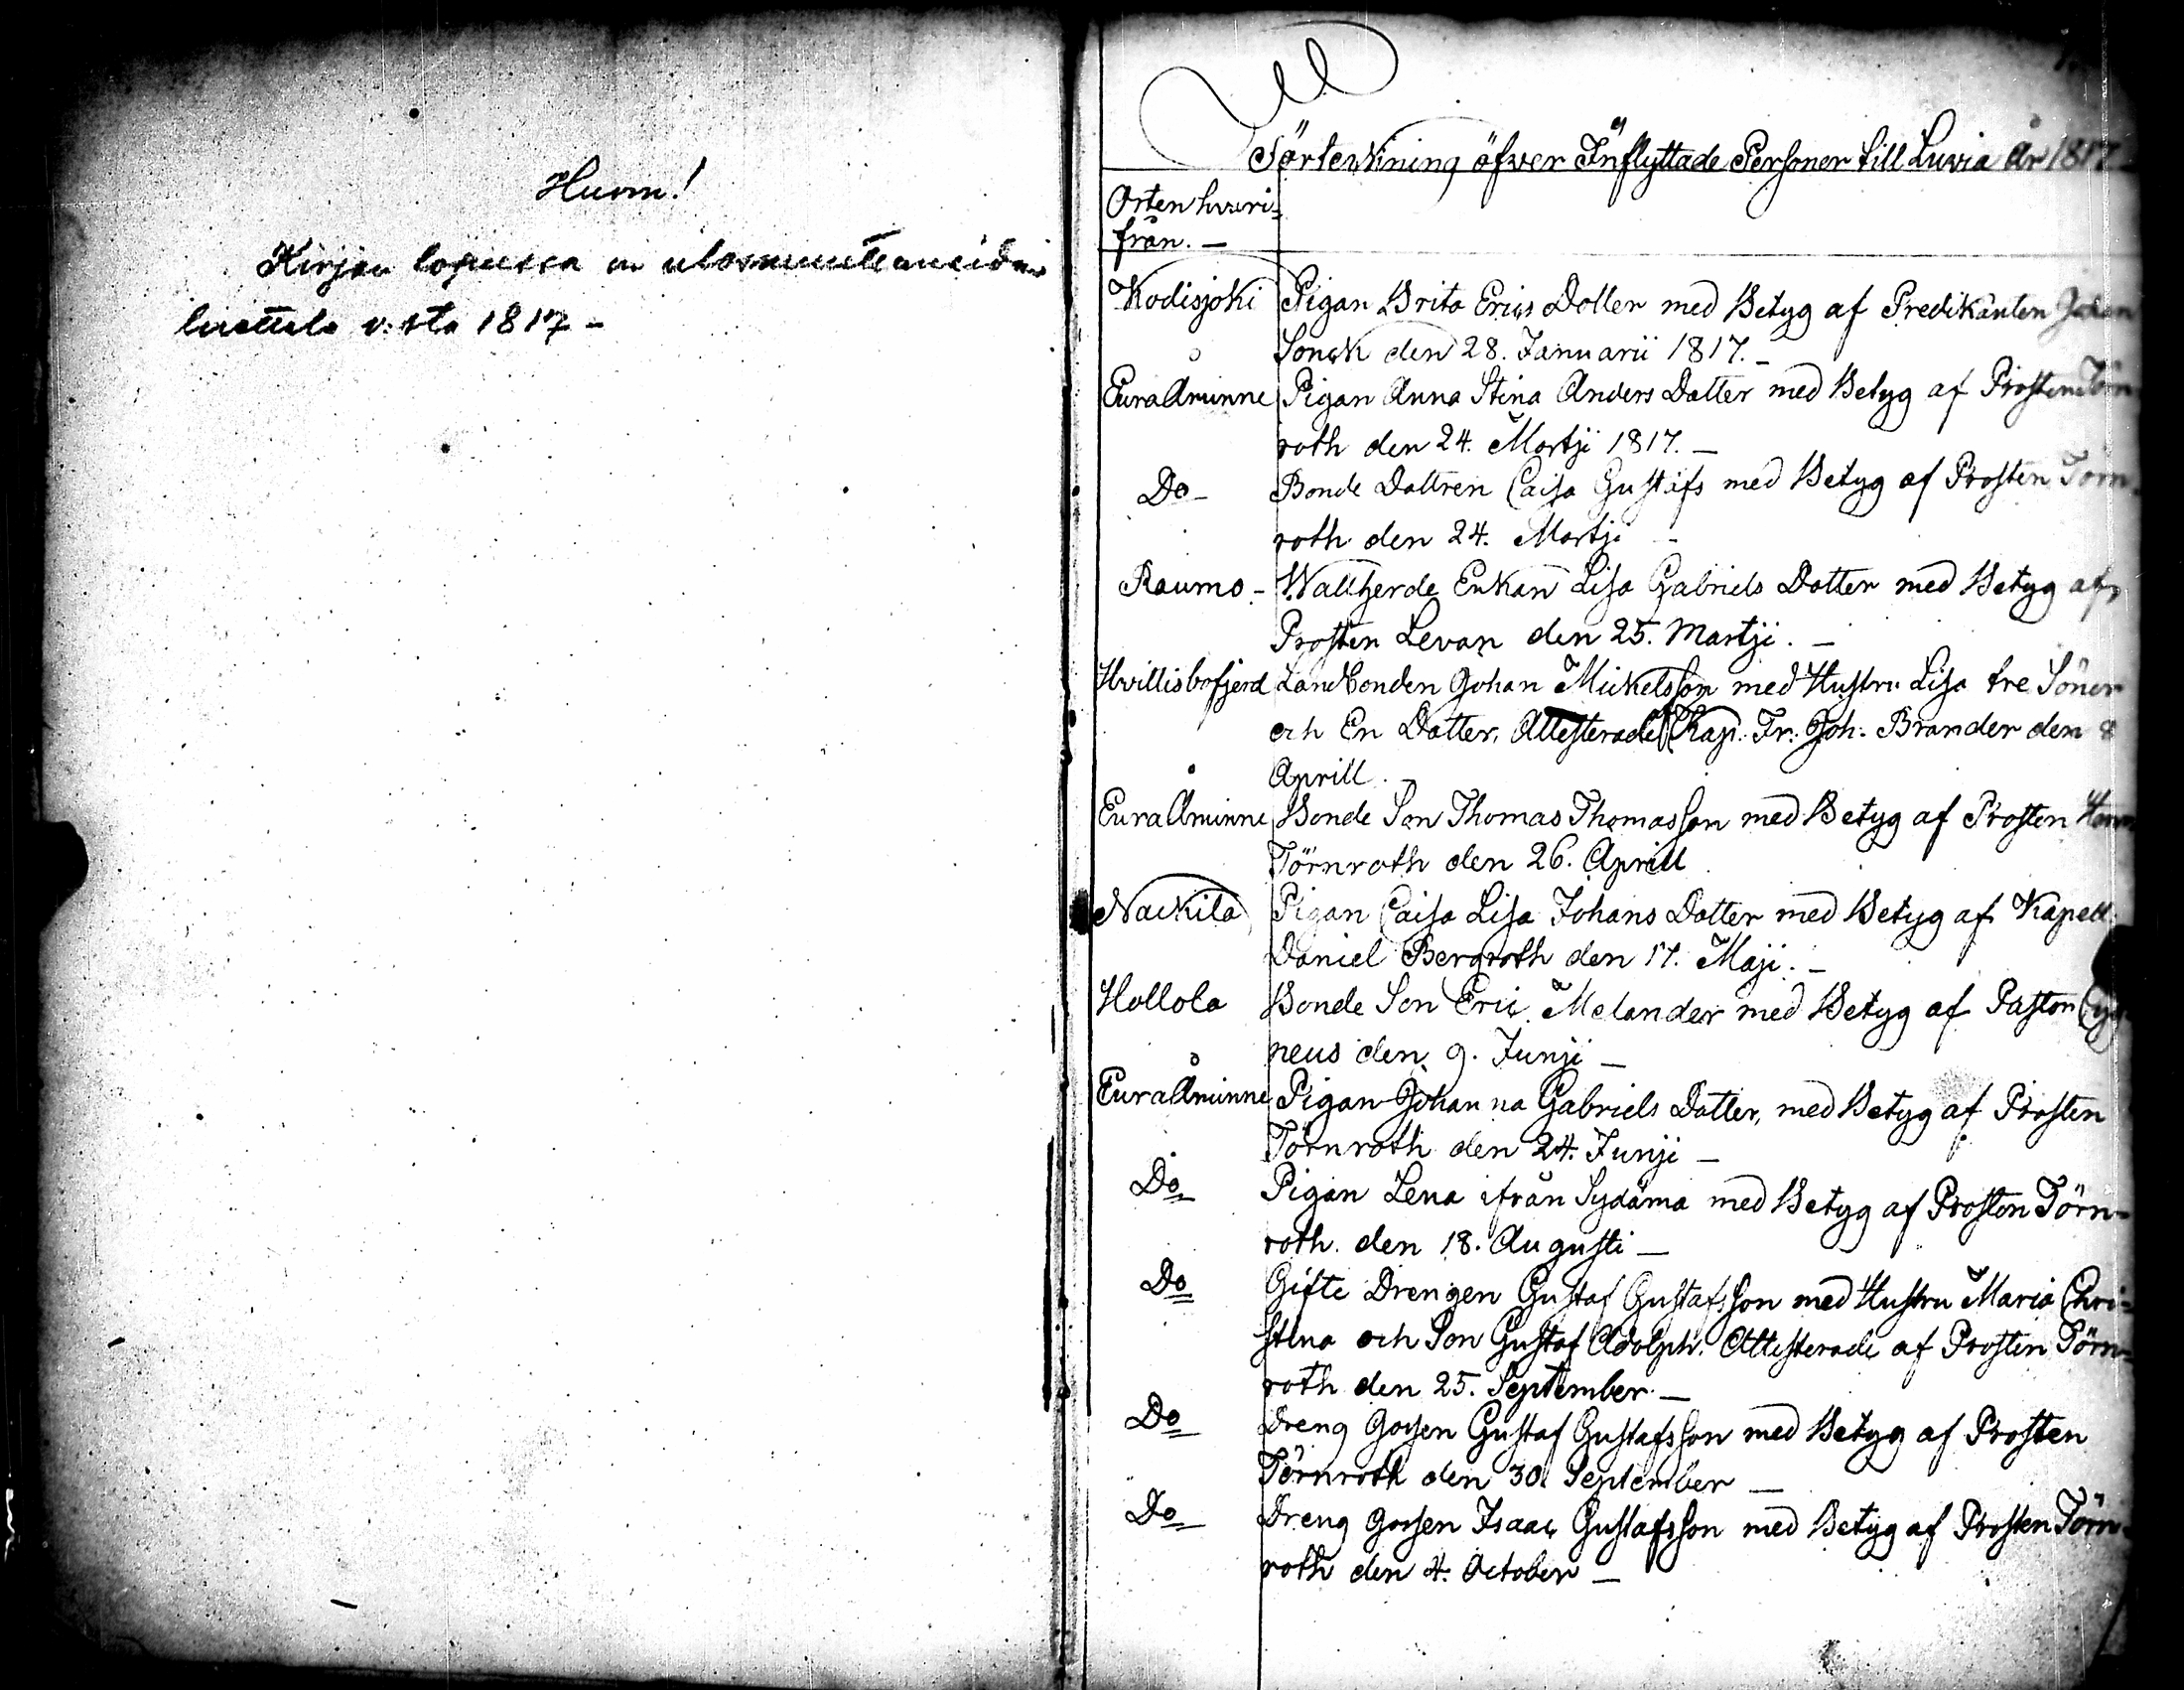 Huom!
Kirjan lopussa on ulosmuuttaneiden
luettelo v:sta 1817 -
Förteckning öfver Inflyttade Personer till Luvia År 1817
Orten hvari=
från. —
Kodisjoki Pigan Brita Erics Dotter med Betyg af Predikanten Johan
Sonck den 28. Januarii 1817. —
EuraÅminne Pigan Anna Stina Anders Dotter med Betyg af Prosten Törn
roth den 24. Martji 1817. —
Do — Bonde Dottren Caisa Gustafs med Betyg af Prosten Törn-
roth den 24. Martji —
Raumo — Wallherde Enkan Lisa Gabriels Dotter med Betyg af
Prosten Levan den 25. Martji. —
Hvittisbofjerd Landbonden Johan Mickelsson med Hustru Lisa tre Söner
och En Dotter, Attesterade Kap. Fr. Joh. Brander den 8
Aprill. —
EuraÅminne Bonde Son Thomas Thomasson med Betyg af Prosten Herr
Törnroth den 26. Aprill
Nackila Pigan Caisa Lisa Johans Dotter med Betyg af Kapell.
Daniel Bergroth den 17. Maji. —
Hollola Bonde Son Eric Melander med Betyg af Paston Cyg
neus den 9. Junji —
EuraÅminne Pigan Johanna Gabriels Dotter, med Betyg af Prosten
Törnroth den 24. Junji —
Do Pigan Lena ifrån Sydäma med Betyg af Prosten Törn-
roth. den 18. Augusti —
Do Gifte Drengen Gustaf Gustafsson med Hustru Maria Chri=
stina och Son Gustaf Adolph. Attesterade af Prosten Törn=
roth den 25. September —
Do Dreng Gossen Gustaf Gustafsson med Betyg af Prosten
Törnroth den 30. September —
Do Dreng Gossen Isaac Gustafsson med Betyg af Prosten Törn-
roth den 4. October —